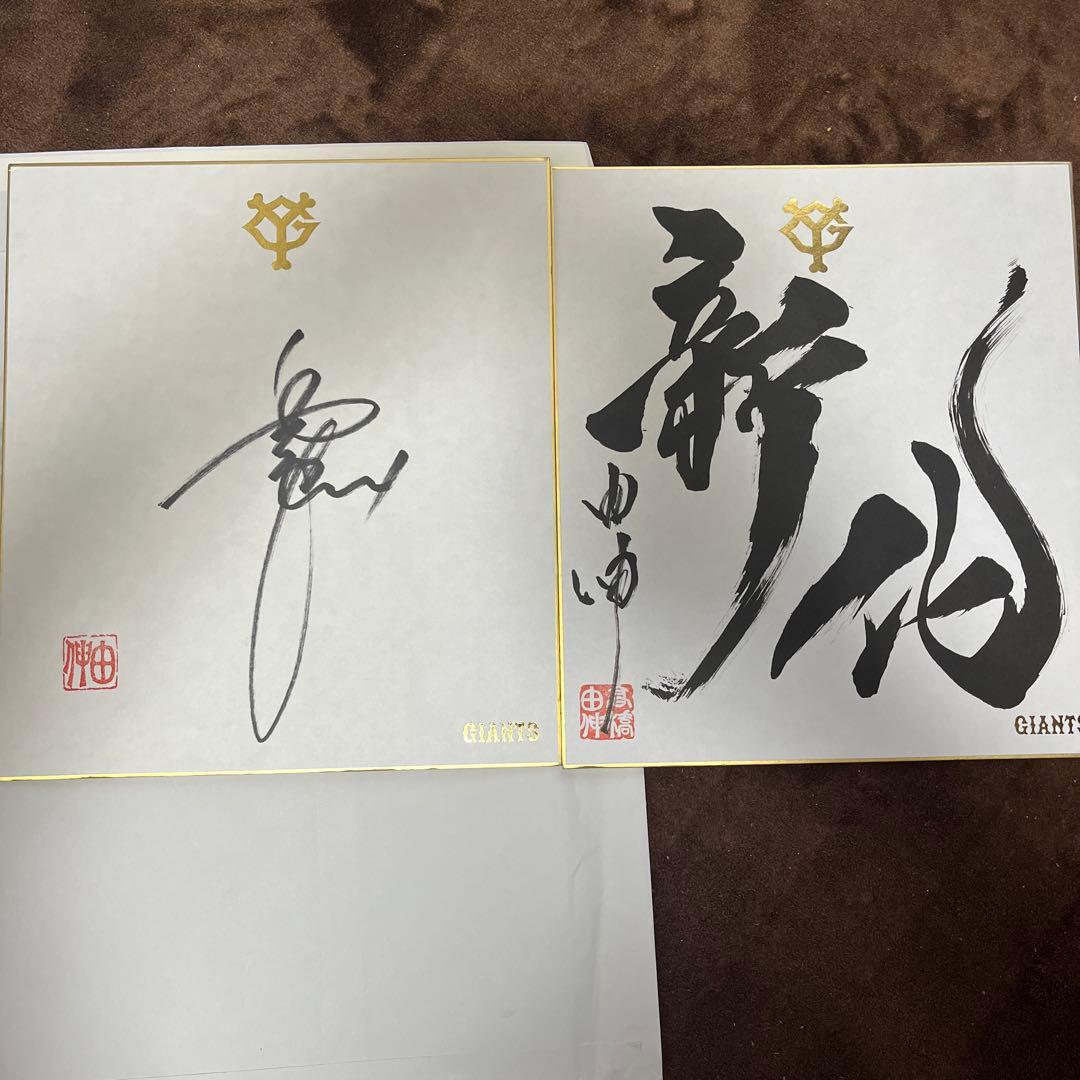 YG
由伸
GIANTS
YG
新化
由伸
高橋
由伸
GIANTS